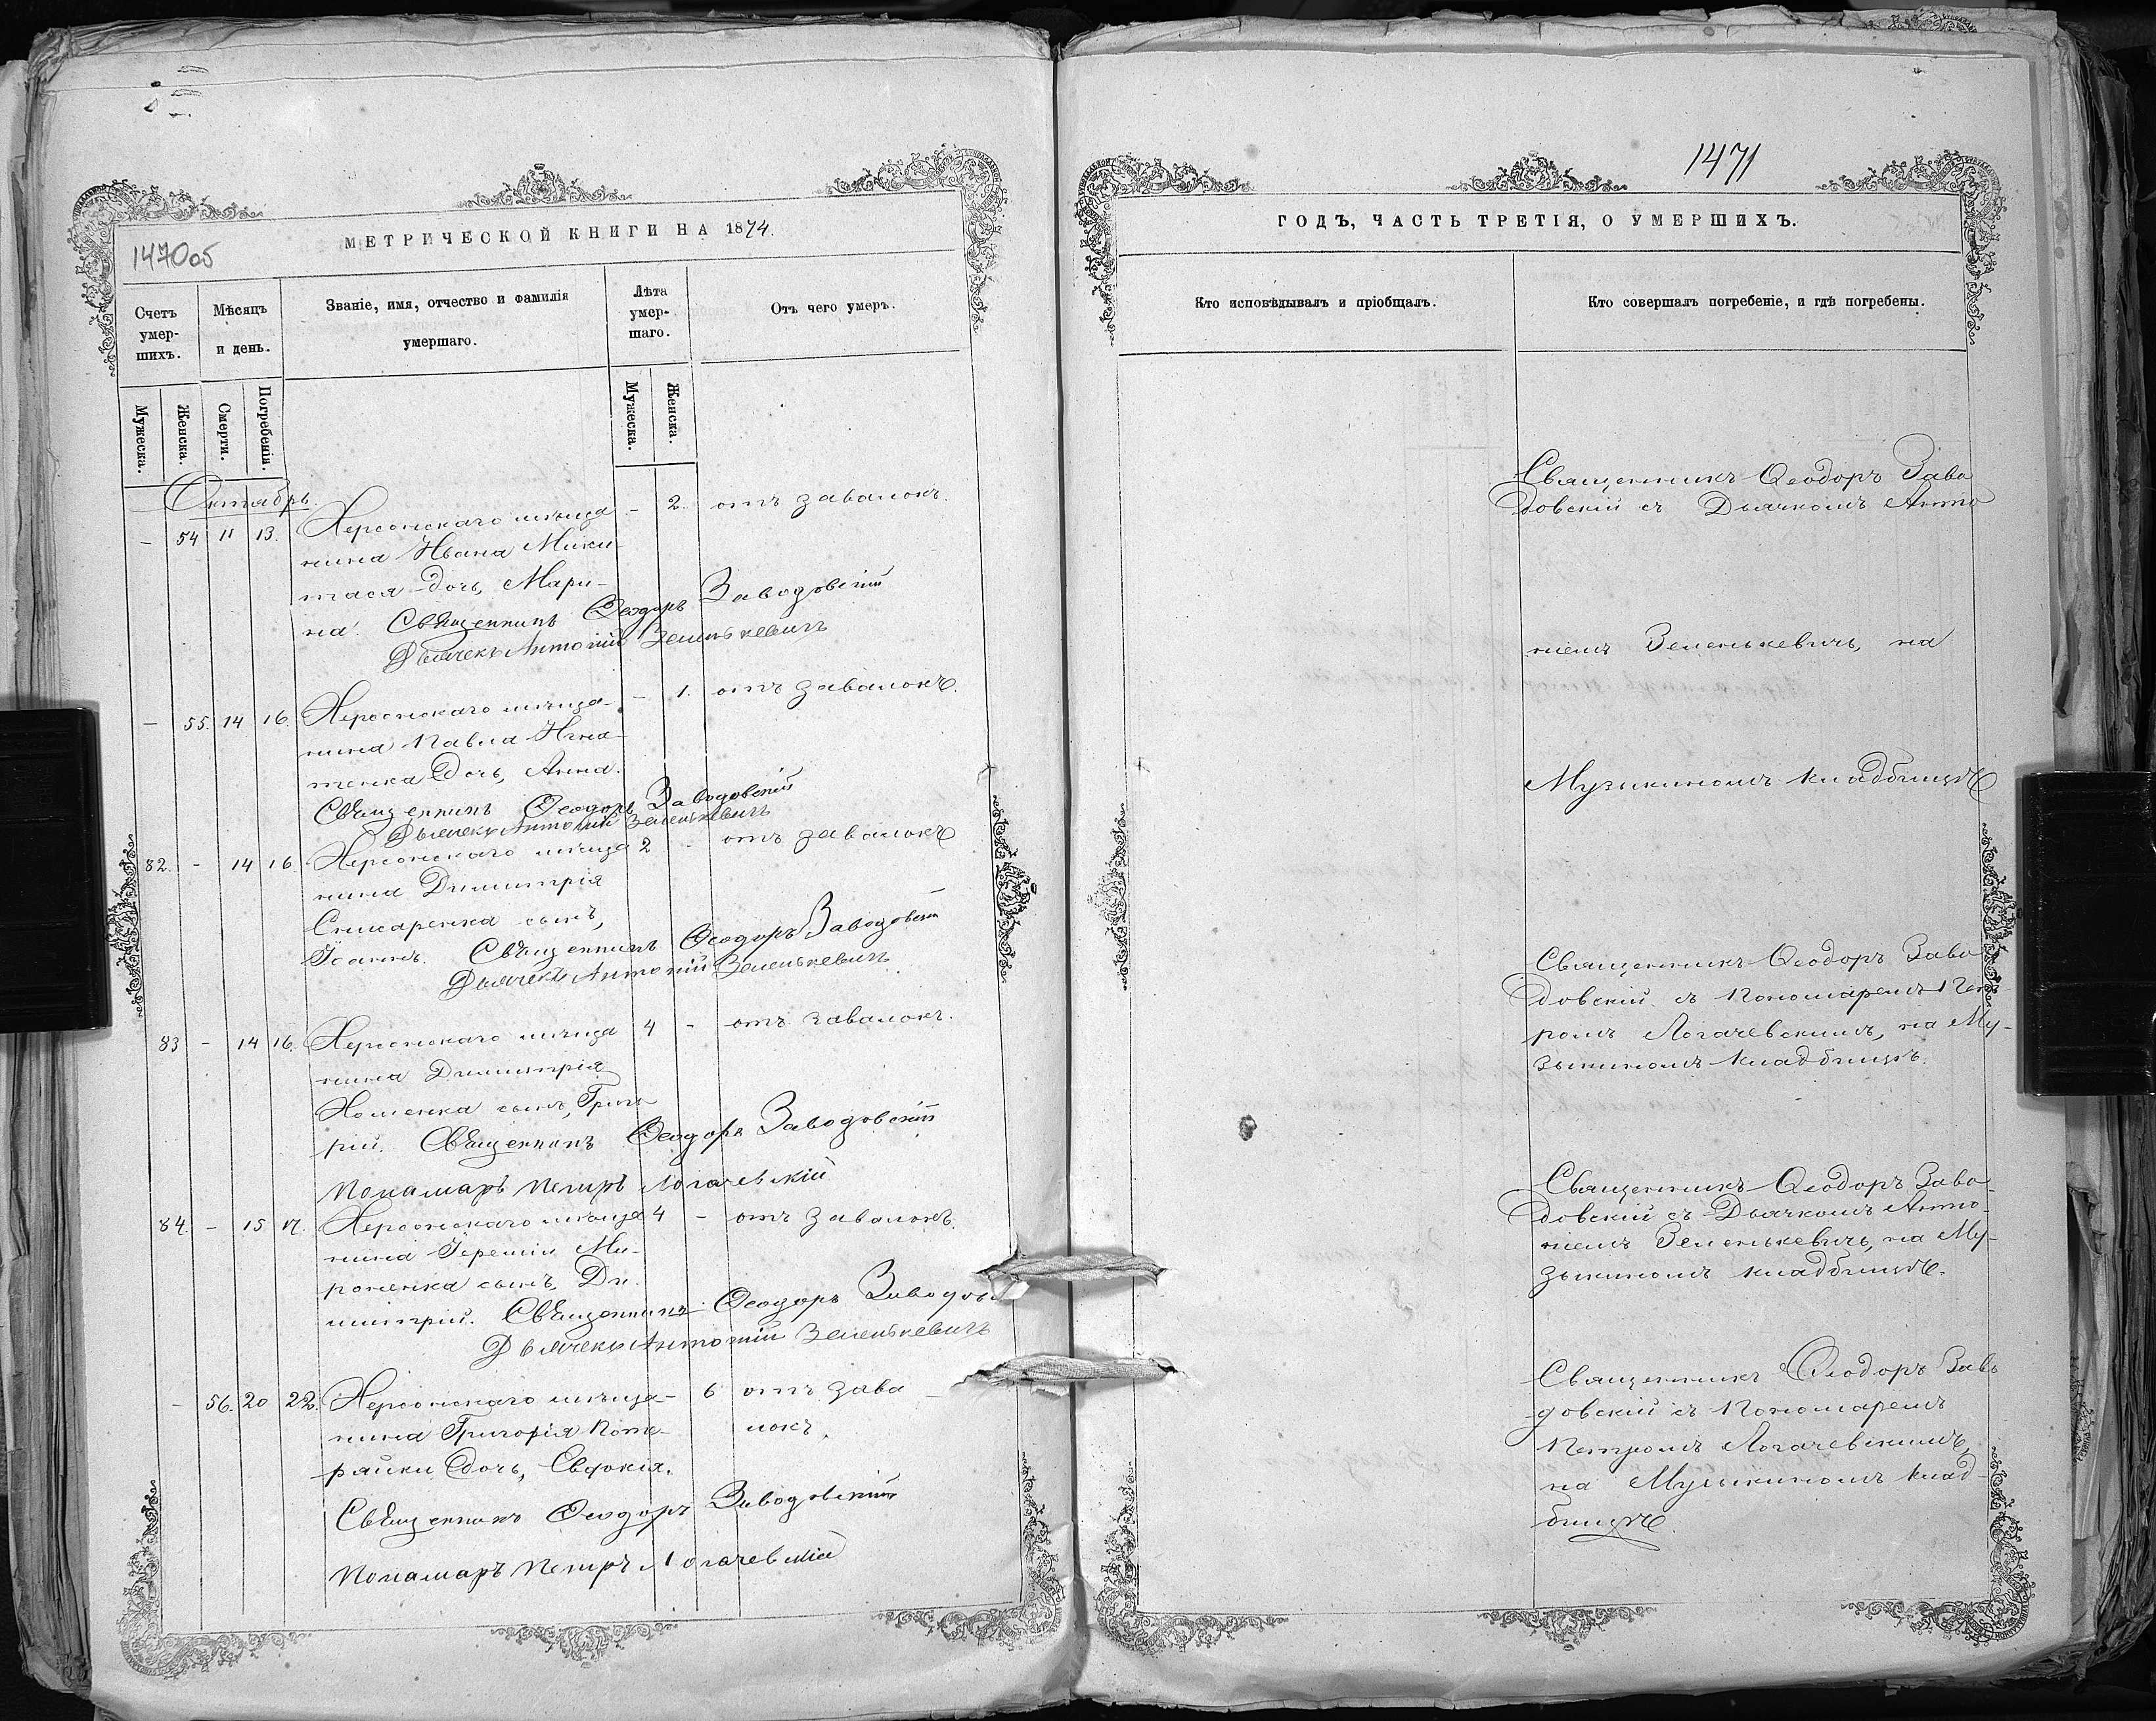 1470об
МЕТРИЧЕСКОЙ КНИГИ НА 1874.
Счетъ умер-шихъ.
Мѣсяцъ и день.
Званіе, имя, отчество и фамилія умершаго.
Лѣта умер-шаго.
Отъ чего умеръ.
Мужеска.
Женска.
Смерти.
Погребенія.
Мужеска.
Женска.
Октябрь.
– 54 11 13. Херсонскаго мѣща – 2. отъ завалокъ.
нина Ивана Мики-
таса дочь, Мари-
на. Священникъ Ѳеодоръ Заводовскій
Дьячекъ Антоній Зеленькевичъ
– 55. 14 16. Херсонскаго мѣща- – 1. отъ завалокъ.
нина Павла Игна-
тенка дочь, Анна.
Священникъ Ѳеодоръ Заводовскій
Дьячекъ Антоній Зеленькевичъ
82. – 14 16. Херсонскаго мѣща 2 - отъ завалокъ
нина Димитрія
сынъ,
Іоаннъ. Священникъ Ѳеодоръ Заводовскій
Дьячекъ Антоній Зеленькевичъ
83 – 14 16. Херсонскаго мѣща 4 - отъ завалокъ.
нина Димитрія
Хоменка сынъ, Григо-
рій. Священникъ Ѳеодоръ Заводовскій
Пономаръ Петръ Логачевскій
84. – 15 17. Херсонскаго мѣща 4 – отъ завалокъ.
нина Іереміи Ми-
роненка сынъ, Ди-
митрій. Священникъ Ѳеодоръ Заводовс
Дьячекъ Антоній Зеленькевичъ
– 56. 20 22. Херсонскаго мѣща- 6 отъ зава
нина Григорія Поте- локъ.
ряйки дочь, Евдокія.
Священникъ Ѳеодоръ Заводовскій
Пономаръ Петръ Логачевскій
1471
ГОДЪ, ЧАСТЬ ТРЕТІЯ, О УМЕРШИХЪ.
Кто исповѣдывалъ и пріобщалъ.
Кто совершалъ погребеніе, и гдѣ погребены.
Священникъ Ѳеодоръ Заво
довскій съ Дьячкомъ Анто
ніемъ Зеленькевичъ, на
Музыкиномъ кладбищѣ
Священникъ Ѳеодоръ Заво
довскій съ Пономаремъ Пет
ромъ Логачевскимъ, на Му-
зыкиномъ кладбищѣ.
Священникъ Ѳеодоръ Заво-
довскій съ Дьячкомъ Анто-
ніемъ Зеленькевичъ, на Му-
зыкиномъ кладбищѣ.
Священникъ Ѳеодоръ Заво
довскій съ Пономаремъ
Петромъ Логачевскимъ,
на Музыкиномъ клад-
бищѣ.